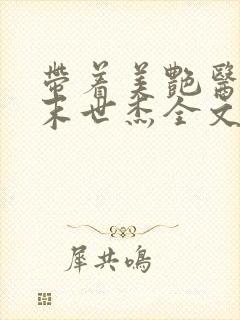 帶着美艷醫
末世杰全文
犀共鳴